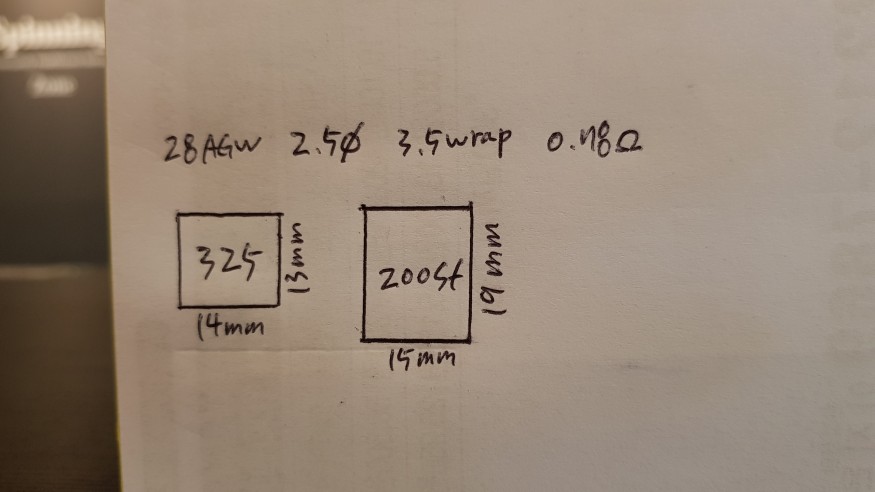 Spinning
28AGW 2.5ø 3.5wrap 0.78Ω
325
13mm
14mm
200St
19mm
15mm